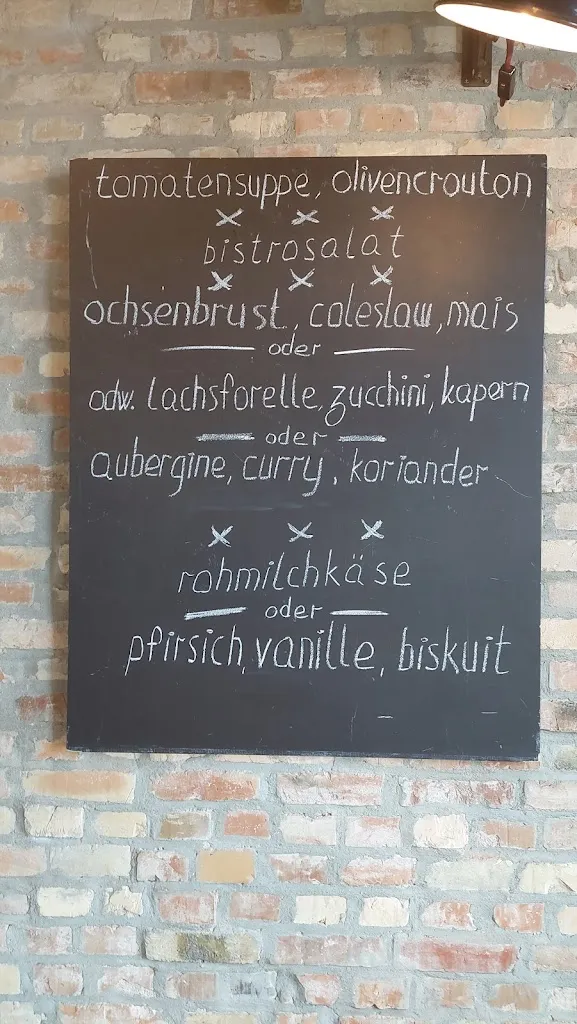 tomatensuppe, olivencrouton
x x x
bistrosalat
x x x
ochsenbrust, coleslaw, mais
oder
odw. lachsforelle, zucchini, kapern
oder
aubergine, curry, koriander
x x x
rohmilchkäse
oder
pfirsich, vanille, biskuit